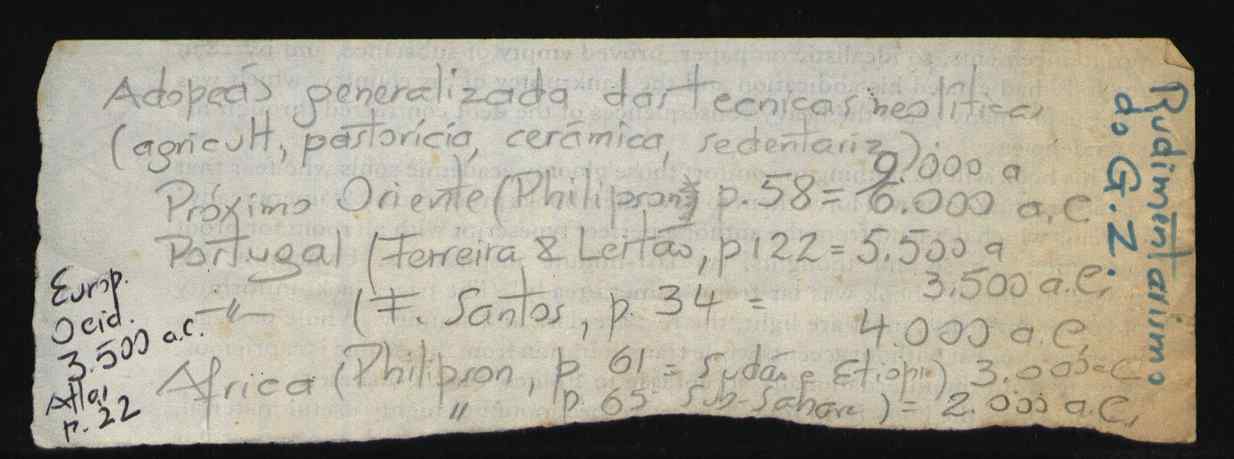 Adopção generalizada das tecnicas neoliticas
(agricult, pastorícia, cerámica, sedentariz.)
9.000 a
Próximo Oriente (Philipson, p. 58 = 6.000 a.C
Portugal (Ferreira & Leitão, p 122 = 5.500 a
3.500 a.C.
-"- (F. Santos, p. 34 = 4.000 a.C.
Africa (Philipson, p 61 = Sudão e Etiopia) 3.000 a.C
" p. 65 Sub-Sahara) = 2.000 a.C.
Europ.
Ocid.
3.500 a.C.
Atla,
p. 22
Rudimentarismo
do G. Z.